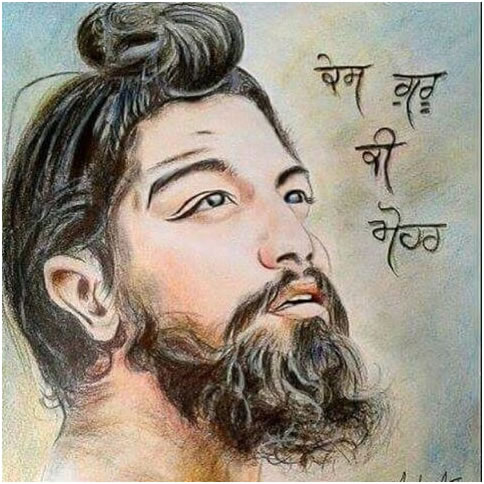 ਕੇਸ ਗੁਰੂ
ਕੀ
ਮੋਹਰ